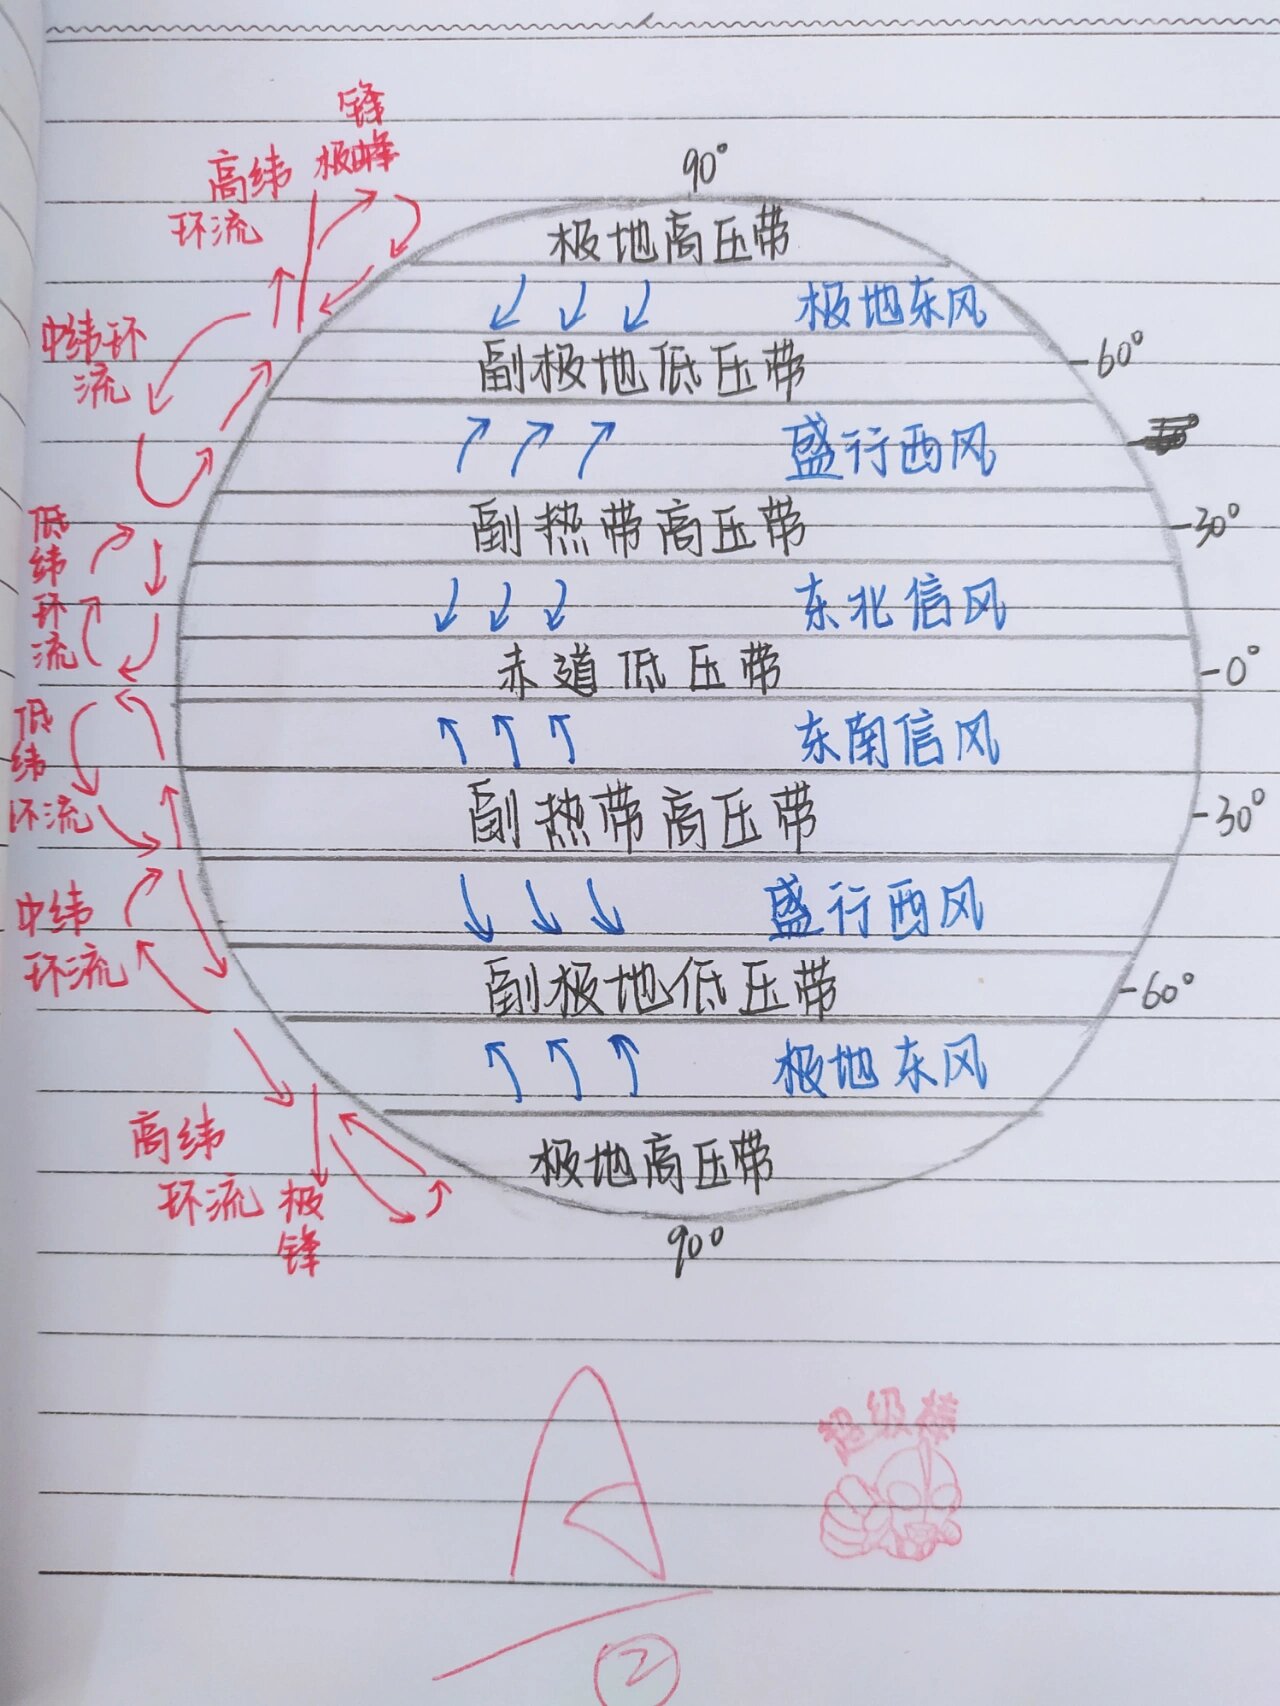 锋
极峰
高纬
环流
90°
极地高压带
极地东风
中纬环
流
60°
副极地低压带
盛行西风
30°
副热带高压带
低
纬
环
流
东北信风
0°
赤道低压带
低
纬
环流
东南信风
30°
副热带高压带
中纬
环流
盛行西风
60°
副极地低压带
极地东风
高纬
环流
极
锋
极地高压带
90°
A
超级棒
2